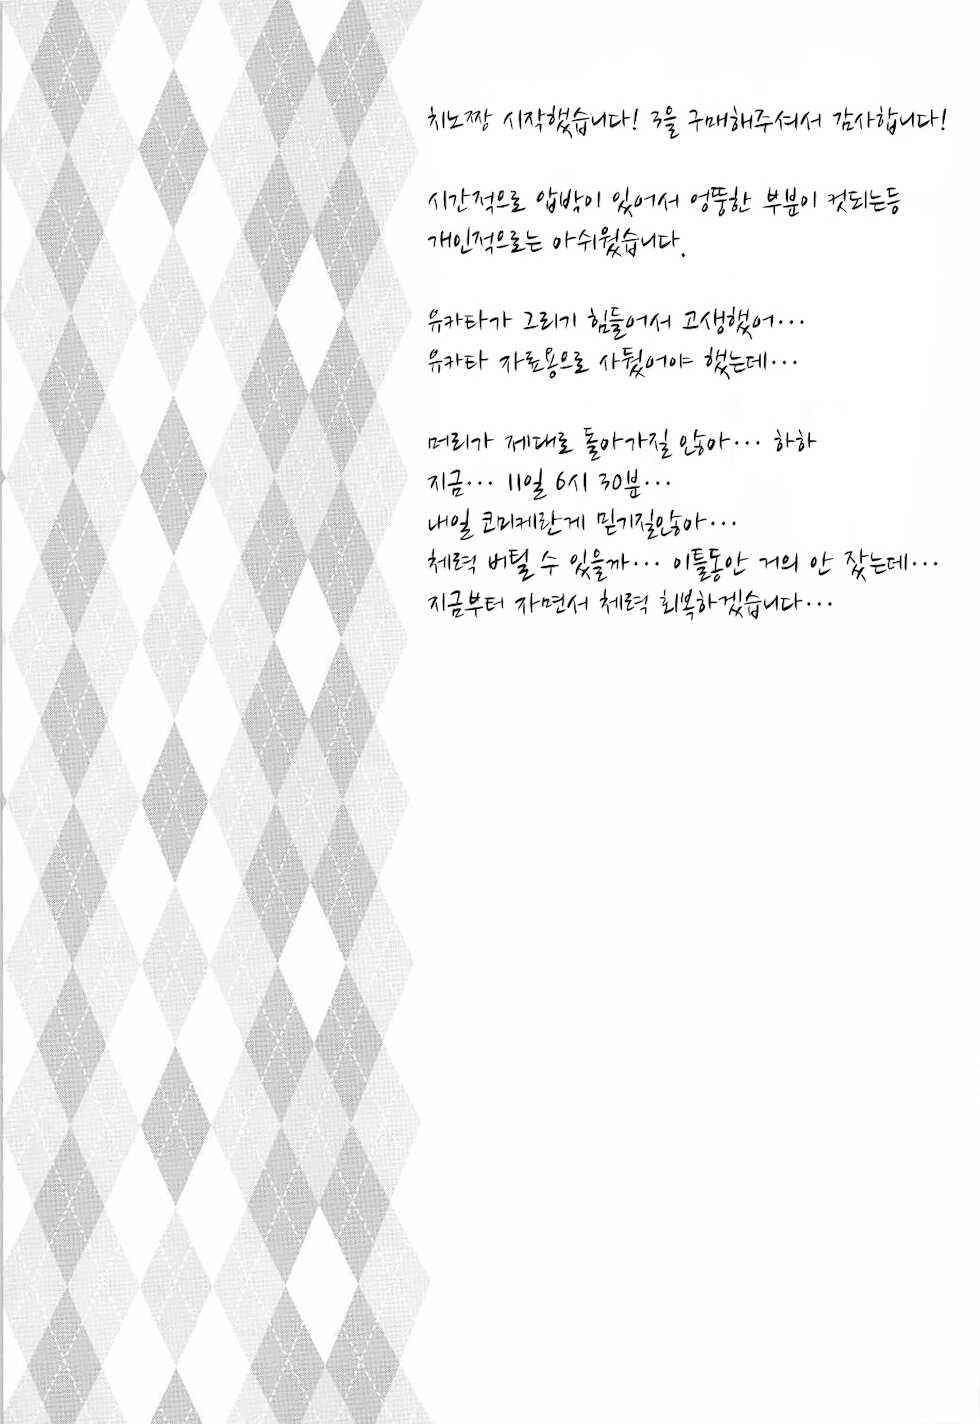 치노짱 시작했습니다! 3을 구매해주셔서 감사합니다!
시간적으로 압박이 있어서 엉뚱한 부분이 컷되는등
개인적으로는 아쉬웠습니다.
유카타가 그리기 힘들어서 고생했어...
유카타 자료용으로 사뒀어야 했는데...
머리가 제대로 돌아가질 않아... 하하
지금... 11일 6시 30분...
내일 코미케란게 믿기질않아...
체력 버틸 수 있을까... 이틀동안 거의 안 잤는데...
지금부터 자면서 체력 회복하겠습니다...